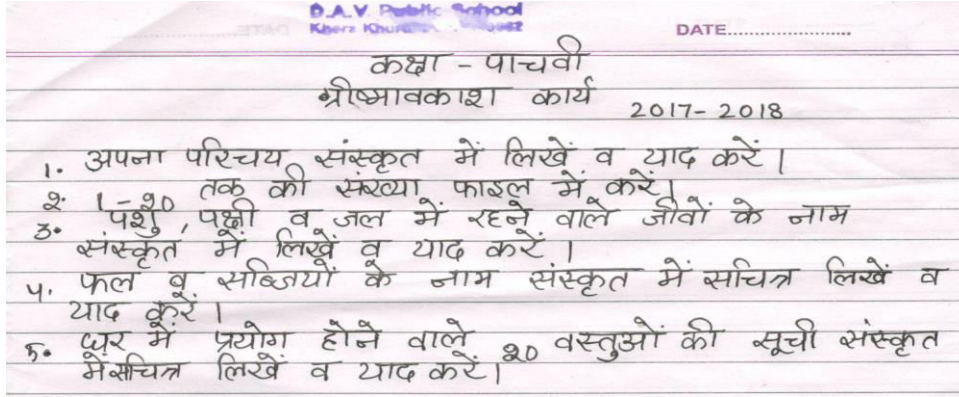 D.A.V. Public School
Khera Khurd
DATE
कक्षा - पाचवी
ग्रीष्मावकाश कार्य
2017-2018
1. अपना परिचय संस्कृत में लिखें व याद करें।
2. 1-20 तक की संख्या फाइल में करें।
3. पशु, पक्षी व जल में रहने वाले जीवों के नाम
संस्कृत में लिखें व याद करें।
4. फल व सब्जियों के नाम संस्कृत में सचित्र लिखें व
याद करें।
5. घर में प्रयोग होने वाले 20 वस्तुओं की सूची संस्कृत
में सचित्र लिखें व याद करें।